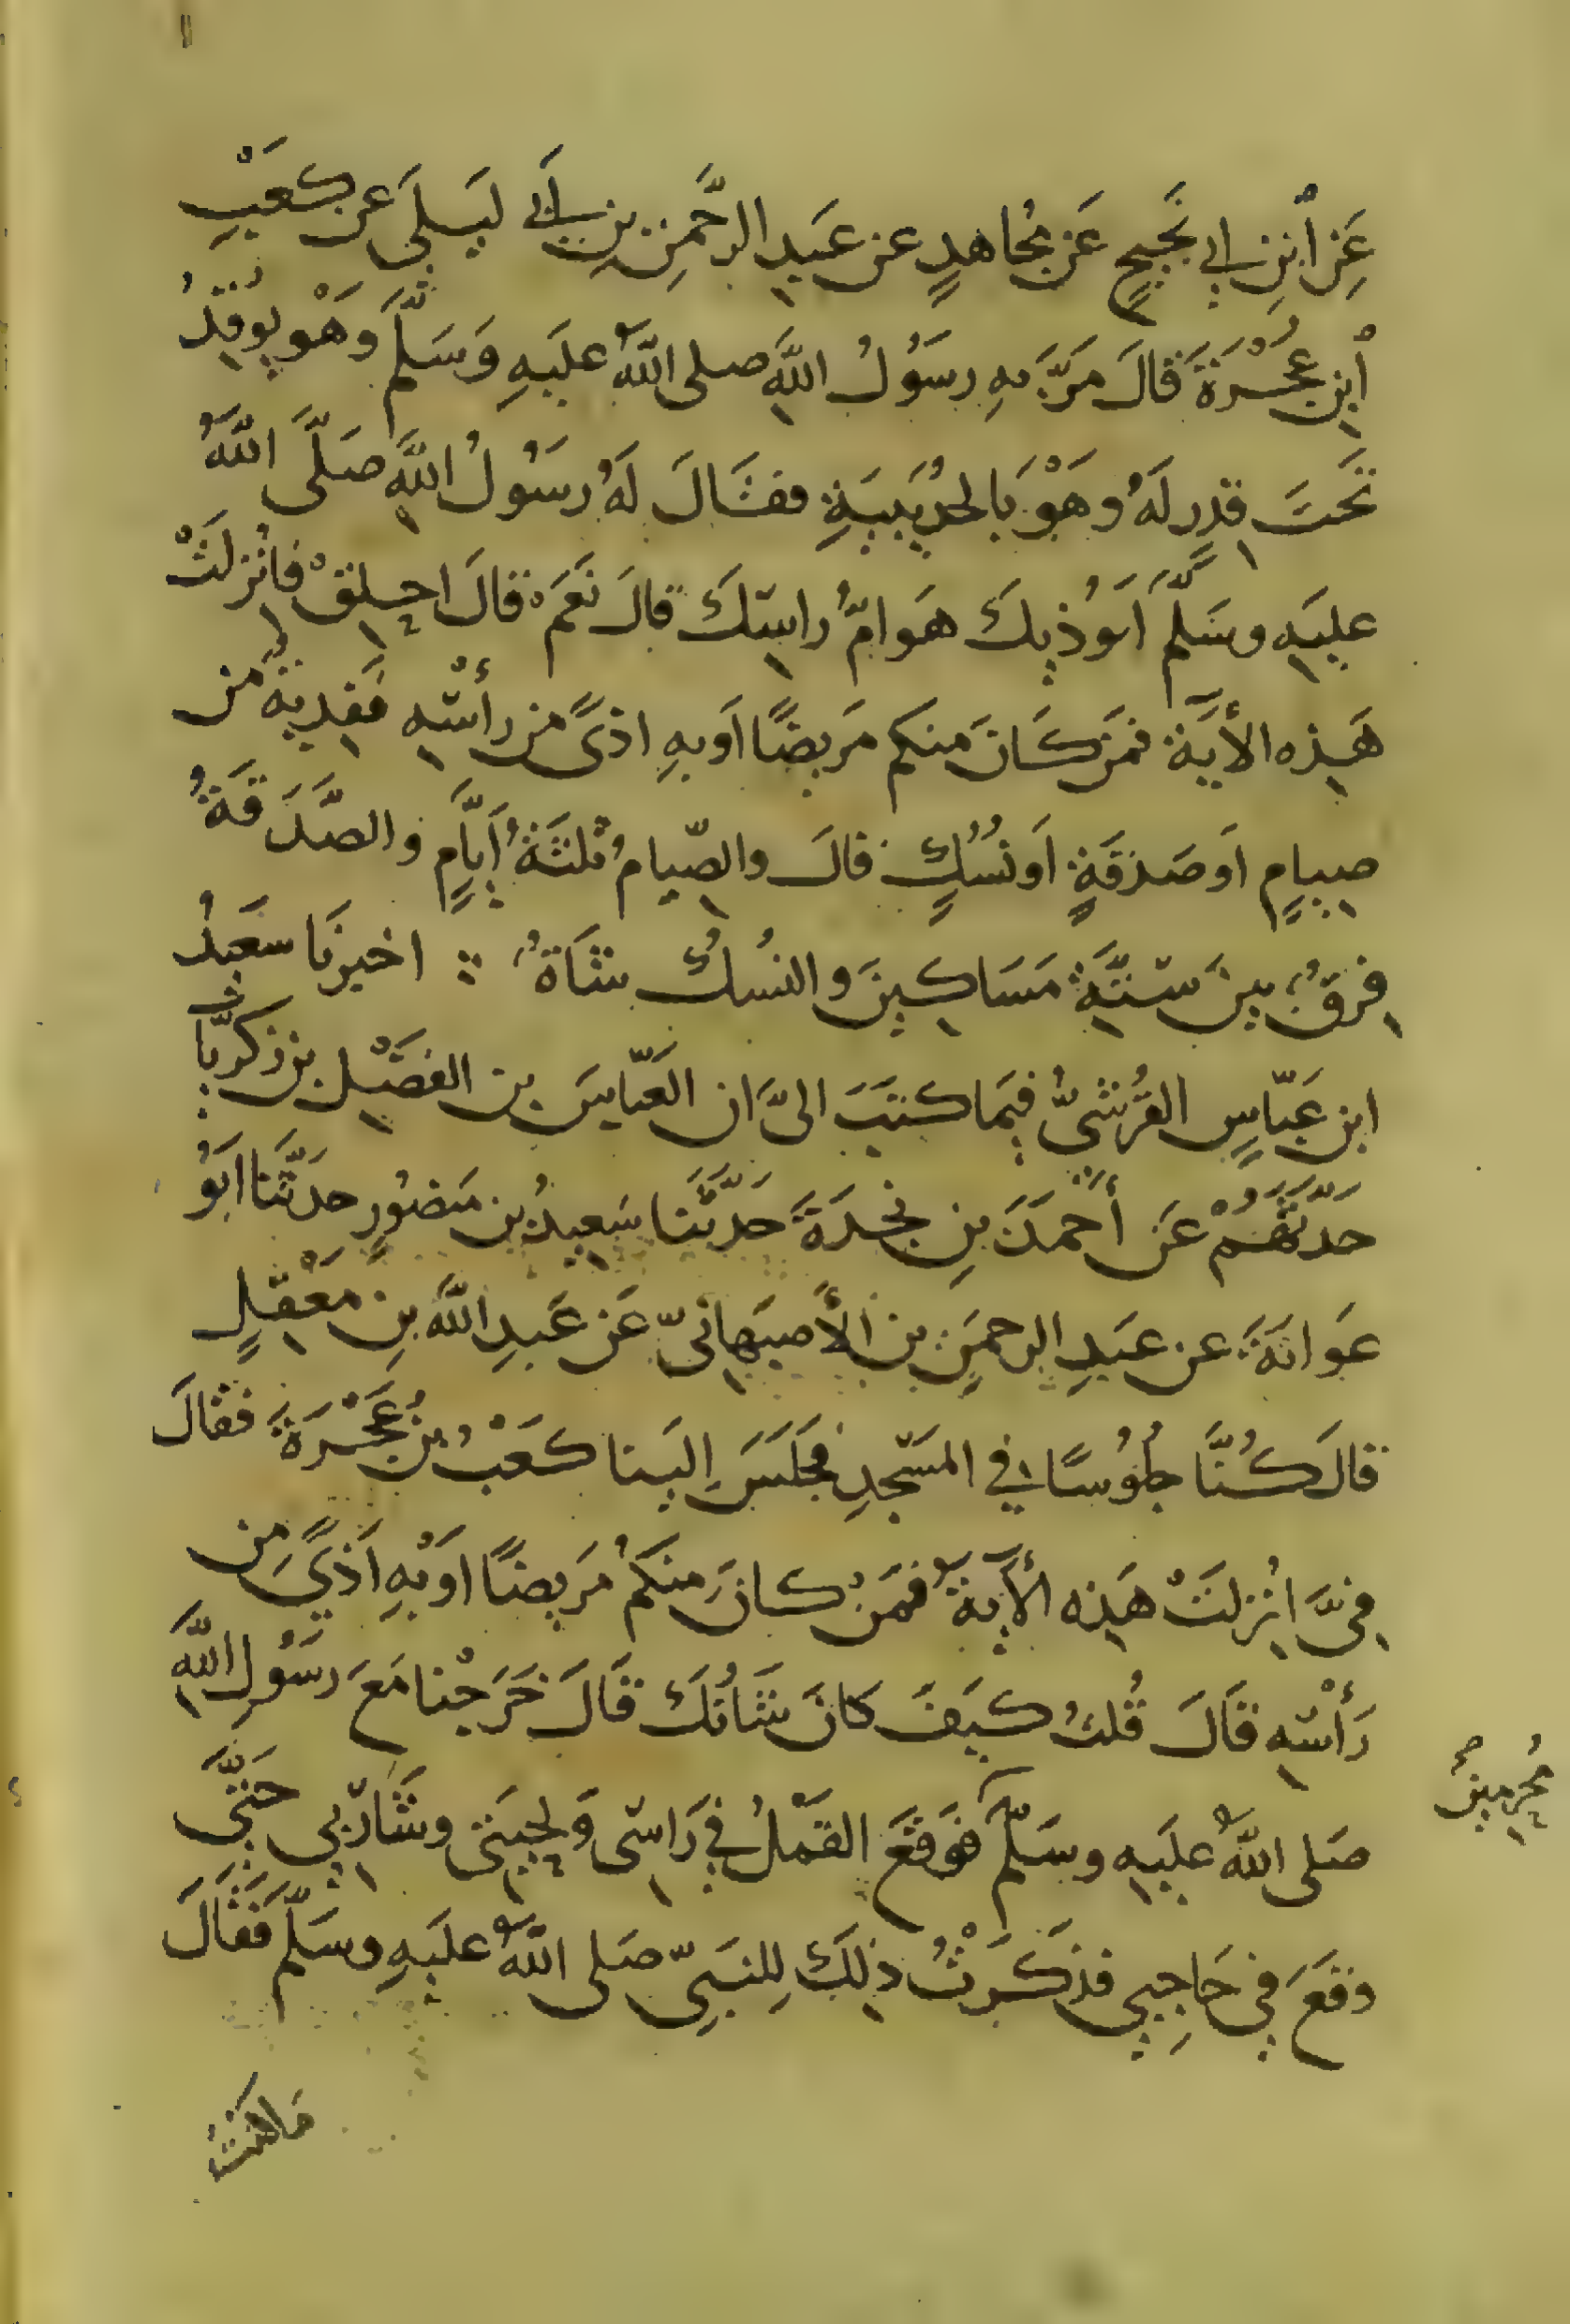 عَنِ ابْنِ ابي نَجِيحٍ عَن مُجاهدٍ عن عَبدِ الرَّحْمنِ بنِ أَبي لَيلَى عن كعْبِ
ابنِ عُجْرَةَ قالَ مَرَّ بهِ رسُولُ اللهِ صلى اللهُ عليهِ وَسَلَّمَ وَهْو يُوقِدُ
تَحتَ قِدرٍ لَهُ وهْوَ بالحُدَيبِيَةِ فقالَ لَهُ رسُولُ اللهِ صَلَّى اللهُ
عليهِ وسَلَّمَ أَيُوذيكَ هَوامُّ راسِكَ قالَ نَعَمْ قالَ احلِقْ فأُنْزلَتْ
هَذِه الأَيَةُ فمَن كَانَ منكم مَرِيضًا اَو بهِ اذىً من رأْسِهِ فَفِديةٌ من
صِيامٍ اَو صَدَقَةٍ اَو نُسُكٍ قالَ والصِّيامُ ثلثَةُ أَيَّامٍ والصَّدَقَةُ
فِرقٌ بينَ سِتَّةِ مَسَاكِينَ والنسُكُ شَاةٌ اخبرنَا سَعِيدُ
ابن عَبَّاسٍ القُرَشيُّ فيمَا كتَبَ الىَّ ان العَبَّاسَ بن الفضْلِ بن زكريَّا
حدَّثَهُمْ عَن أَحْمَدَ بنِ نجْدَةَ حَدَّثَنا سَعِيدُ بن مَنصُورٍ حدَّثَنا اَبُو
عَوانَةَ عن عبَدِ الرحمَنِ بن الأَصبَهانيّ عَن عَبدِ اللهِ بنِ مَعْقِلٍ
قالَ كُنَّا جُلُوسًا في المَسْجِدِ فجَلَسَ اِلَينا كعْبُ بنُ عُجْرَةَ فقالَ
فِيَّ اُنْزِلَتْ هَذِه الأَيَةُ فمَنْ كانَ منكُم مَرِيضًا اَو بهِ اَذىً مِن
رَأْسِهِ قَالَ قُلتُ كيفَ كانَ شَأنُكَ قَالَ خَرَجْنا مَعَ رسُولِ اللهِ
صَلى اللهُ عليهِ وسَلَّمَ فوَقَعَ القَمْلُ في رَاسِى وَلِحيَتى وشَارِبي حَتَّى
وقَعَ فِي حَاجِبِي فذَكَرْتُ ذلِكَ لِلنَبيِّ صَلى اللهُ عليهِ وسَلَّمَ فَقَالَ
مُحْرِمينَ صح
مَا كنتُ